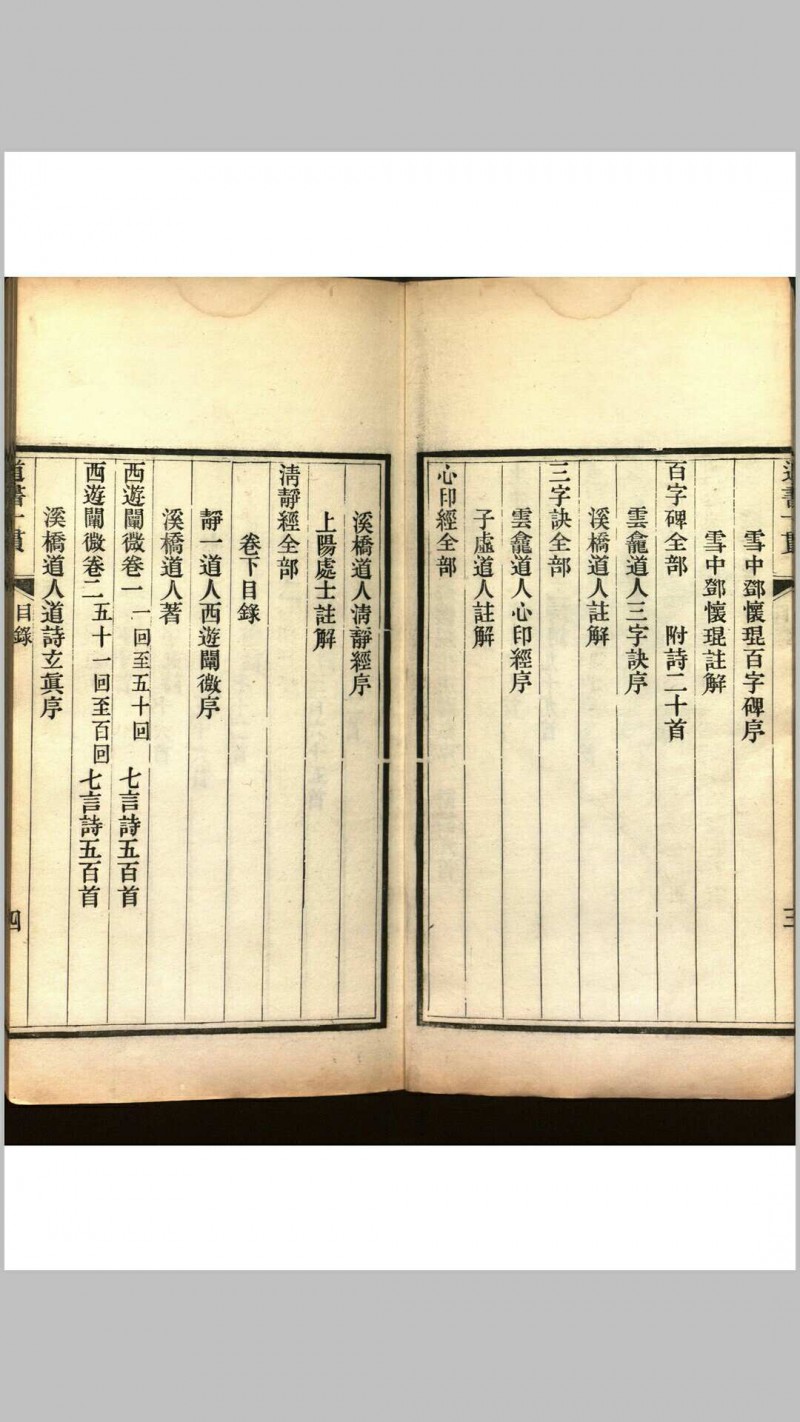 雪中鄧懷琨百字碑序
雪中鄧懷琨註解
百字碑全部 附詩二十首
雲龕道人三字訣序
溪橋道人註解
三字訣全部
雲龕道人心印經序
子虛道人註解
心印經全部
三
溪橋道人清靜經序
上陽處士註解
清靜經全部
卷下目錄
靜一道人西遊闡微序
溪橋道人著
西遊闡微卷一 一回至五十回 七言詩五百首
西遊闡微卷二 五十一回至百回 七言詩五百首
溪橋道人道詩玄眞序
道書一貫 目錄 四